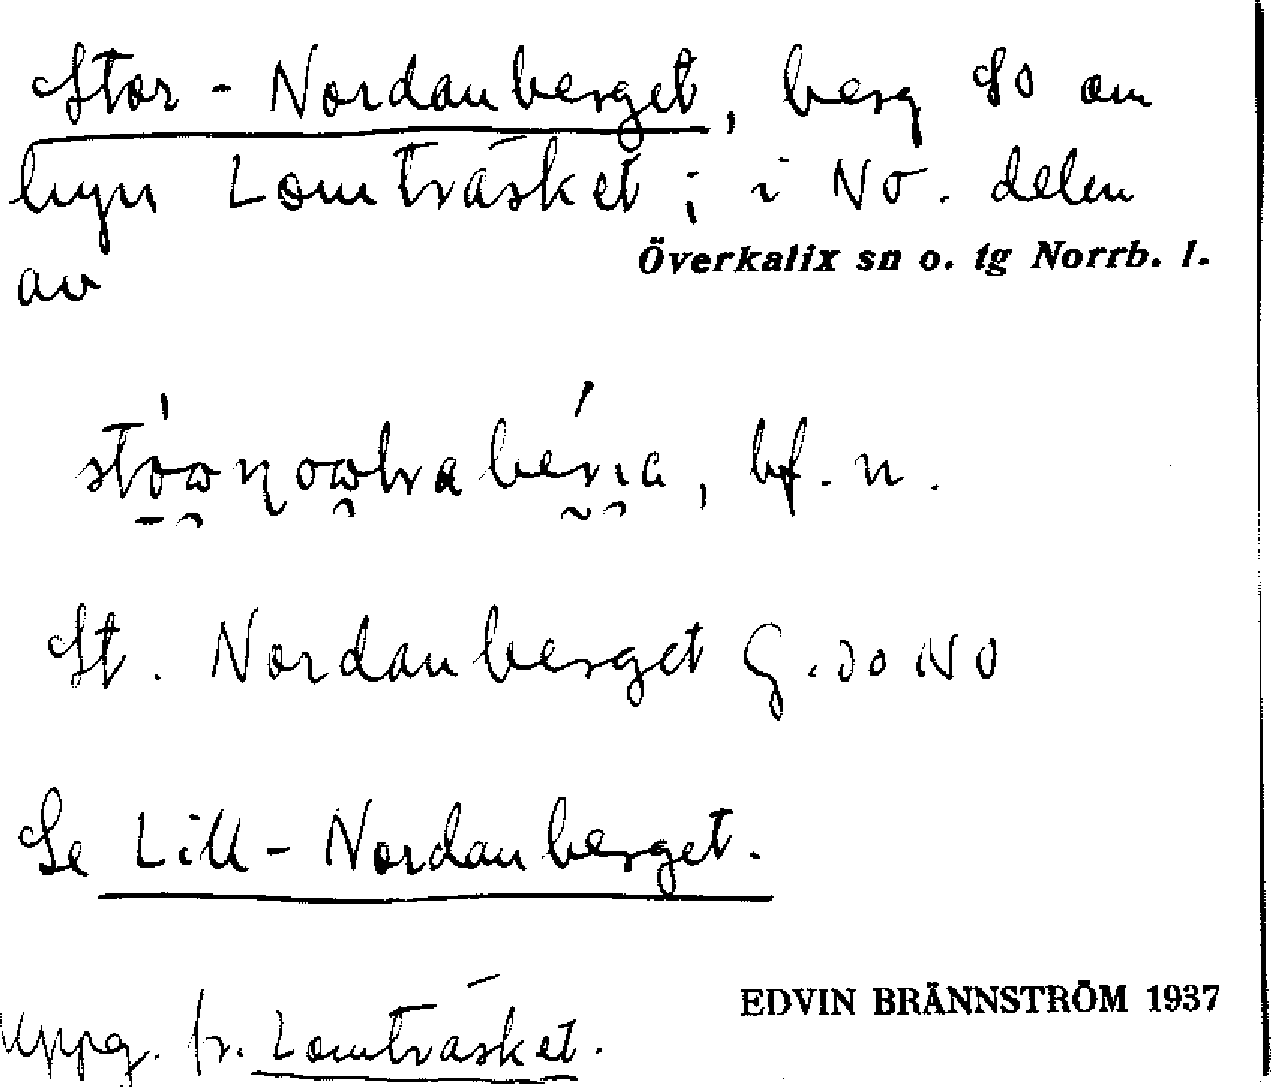 Stor-Nordanberget, berg SO om
byn Lomträsket; i NO. delen
av
Överkalix sn o. tg Norrb. l.
bf. n.
St. Nordanberget G. 30 NO
Se Lill-Nordanberget.
EDVIN BRÄNNSTRÖM 1937
Uppg. fr. Lomträsket.